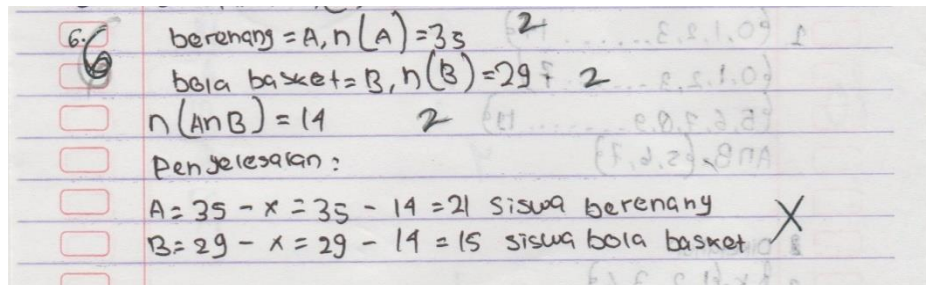 6. berenang = A, n(A) = 35 2
6 bola basket = B, n(B) = 29 + 2
n(AnB) = 14 2
Penyelesaian :
A = 35 - x = 35 - 14 = 21 siswa berenang X
B = 29 - x = 29 - 14 = 15 siswa bola basket